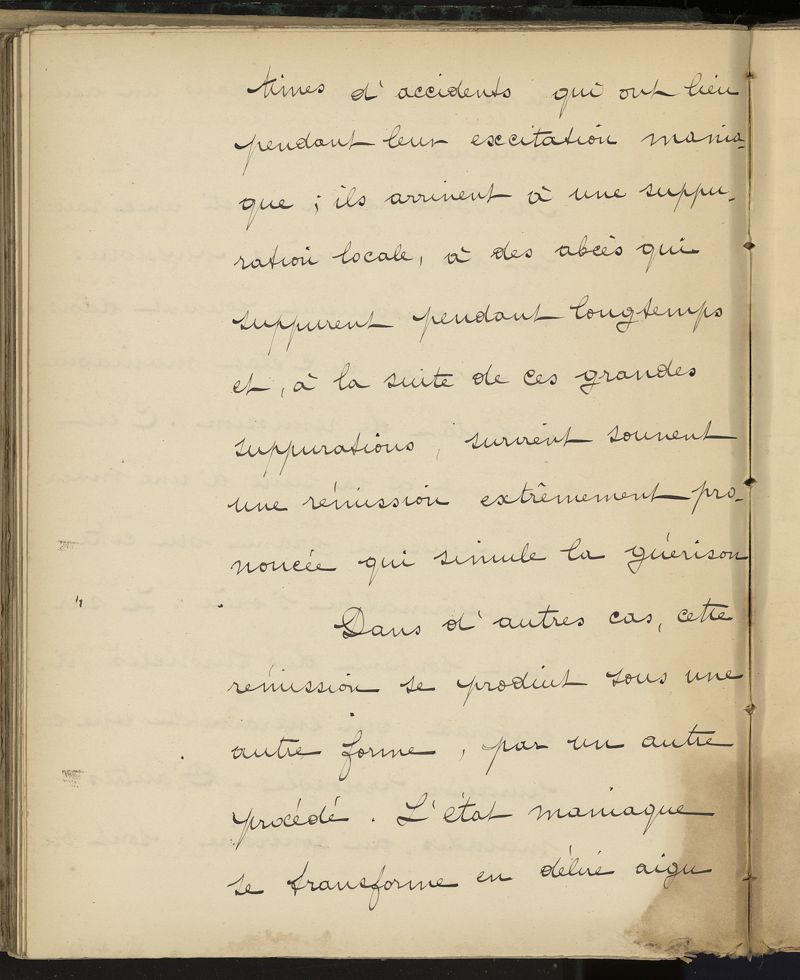 times d'accidents qui ont lieu
pendant leur excitation mania-
que ; ils arrivent à une suppu-
ration locale, à des abcès qui
suppurent pendant longtemps
et, à la suite de ces grandes
suppurations, survient souvent
une rémission extrêmement pro-
noncée qui simule la guérison
Dans d'autres cas, cette
rémission se produit sous une
autre forme, par un autre
procédé. L'état maniaque
se transforme en délire aigu